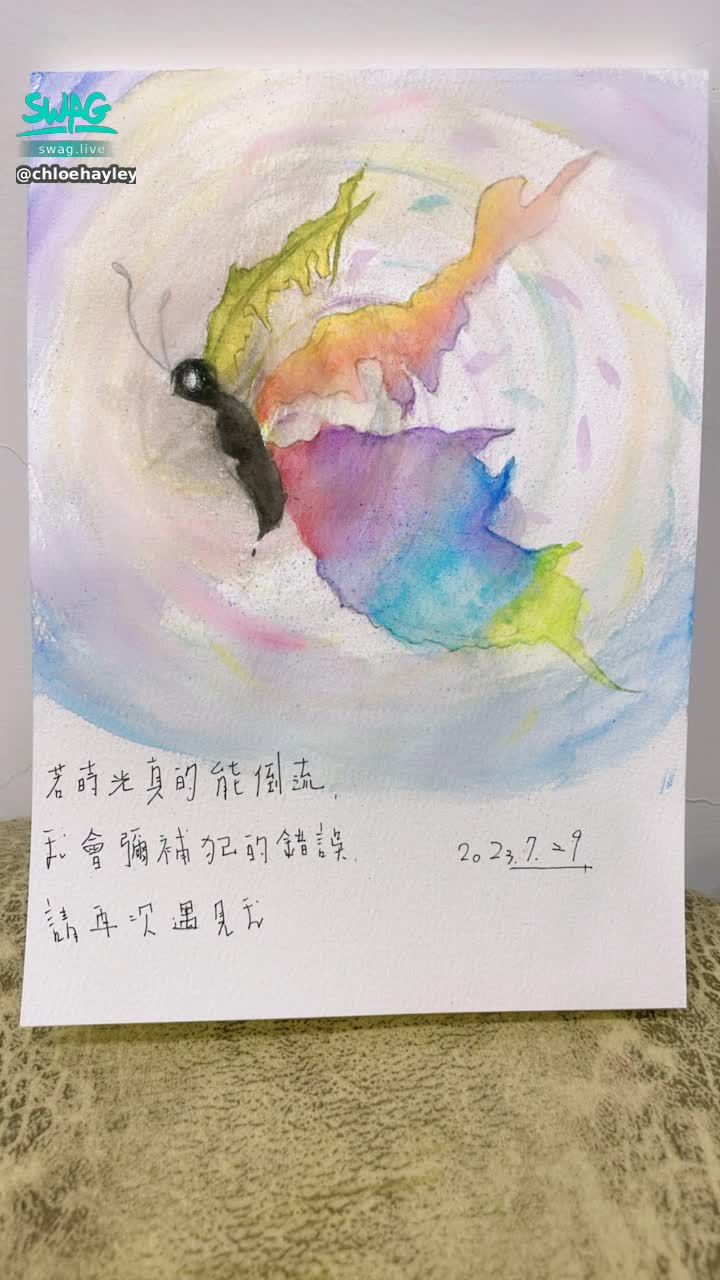 SWAG
swag.live
@chloehayley
若時光真的能倒流,
我會彌補犯的錯誤.
2023.7.29
請再次遇見我